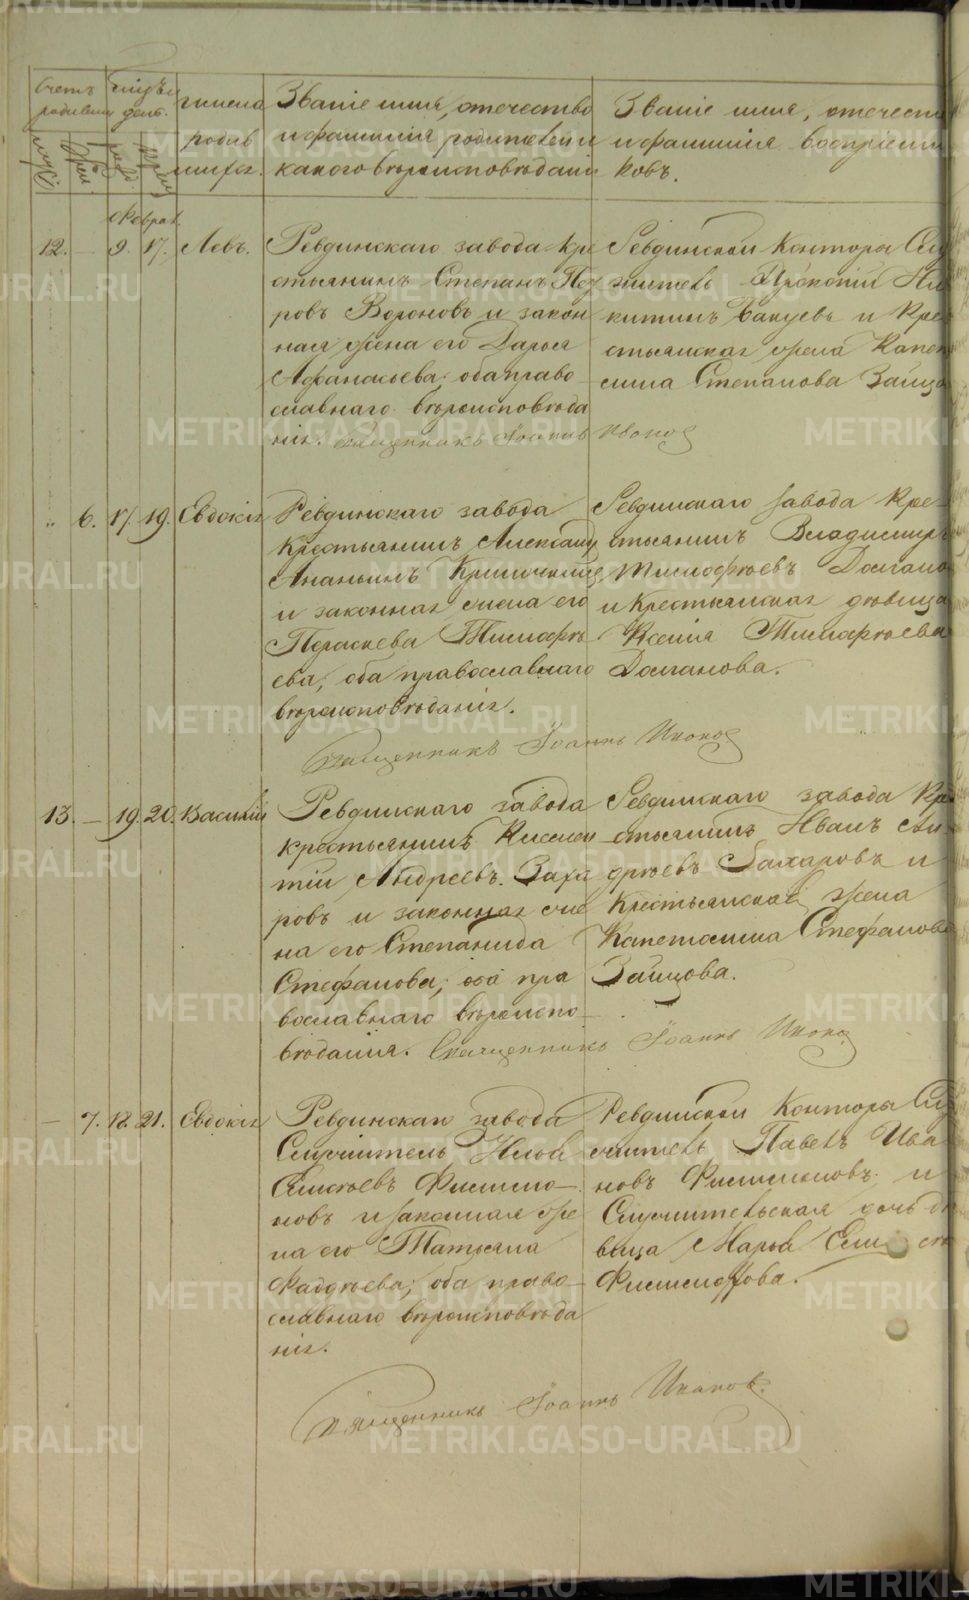 Счетъ родившихся
Мѣсяцъ и день.
Имена родившихся.
Званіе имя, отечество
и фамилія родителей и
какого вѣроисповѣданія
Званіе имя, отечество
и фамилія воспріемни
ковъ.
Феврал.
12. — 9. 17. Левъ.
Ревдинскаго завода кре
стьянинъ Степанъ Пет
ровъ Вороновъ и закон
ная жена его Дарья
Афанасьева; оба право
славнаго вѣроисповѣда
нія. Священникъ Іоаннъ Иконо
Ревдинской Конторы Слу
житель Прокопій Ни
китинъ и Кре
стьянская жена Капето
лина Степанова Зайцо
„ 6. 17. 19. Евдокія
Ревдинскаго завода
Крестьянинъ Александ
Ананьинъ
и законная жена его
Параскева Тимофѣ
ева; оба православнаго
вѣроисповѣданія.
Ревдинскаго завода Кре-
стьянинъ Владимиръ
Тимофѣевъ Долгано
и Крестьянская дѣвица
Ксенія Тимофѣева
Долганова.
Священникъ Іоаннъ Иконо
13. — 19. 20. Василій
Ревдинскаго завода
крестьянинъ Климен
тій Андреевъ Заха
ровъ и законная же
на его Степанида
Стефанова; оба пра
вославнаго вѣроиспо-
вѣданія. Священникъ Іоаннъ Иконо
Ревдинскаго завода Кре
стьянинъ Иванъ Ан
дрѣевъ Захаровъ и
Крестьянская жена
Капетолина Стефанова
Зайцова.
— 7. 18. 21. Евдокія
Ревдинскаго завода
Служитель Илья
Елисѣевъ Филимо-
новъ и законная же
на его Татьяна
Фадѣева; оба право-
славнаго вѣроисповѣда
нія.
Ревдинской Конторы Слу
житель Павелъ Ива
новъ Филимоновъ; и
Служительская дочь дѣ
вица Марья Ели
Филимонова.
Священникъ Іоаннъ Иконо
METRIKI.GASO-URAL.RU